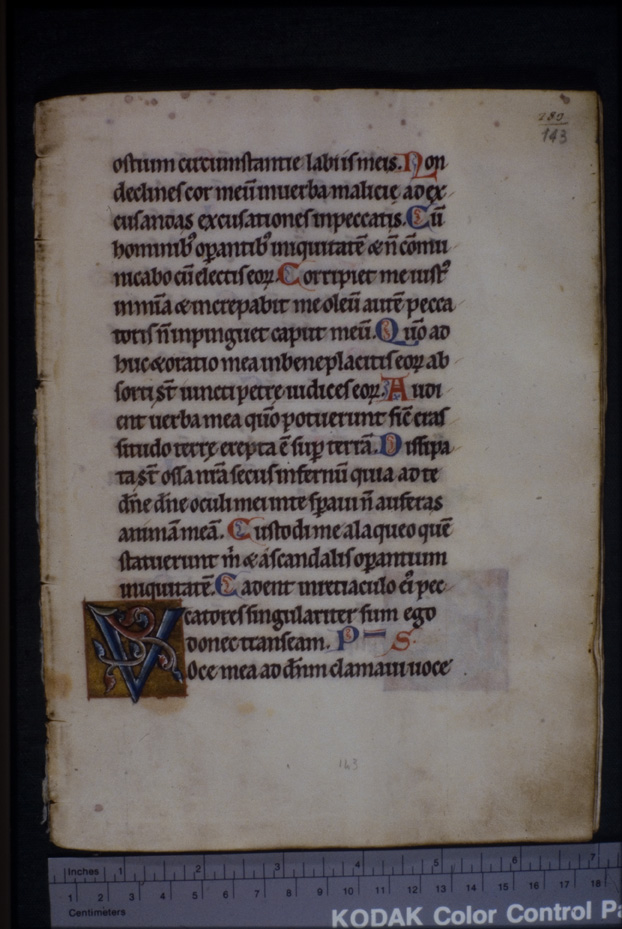 189
143
ostium circumstantie labiis meis. Non
declines cor meū in uerba malicię ad ex
cusandas excusationes in peccatis. Cū
hominib' oꝑantib' iniquitatē & n̄ cōmu
nicabo cū electis eoꝝ. Corripiet me iust'
in mīa & increpabit me oleū autē pecca
toris n̄ inpinguet caput meū. Qūo ad
huc & oratio mea in beneplacitis eoꝝ ab
sorti st̄ iuncti petrę iudices eoꝝ. Audi
ent uerba mea qūo potuerunt sic̄ cras
situdo terrę erepta ē suꝑ terrā. Dissipa
ta st̄ ossa nr̄a secus infernū quia ad te
dn̄e dn̄e oculi mei in te sꝑaui n̄ auferas
animā meā. Custodi me a laqueo quē
statuerunt m̄ & a scandalis oꝑantium
iniquitatē. Cadent in retiaculo ei' pec
catores singulariter sum ego
donec transeam. P S.
Voce mea ad dn̄m clamaui uoce
163
Inches 1 2 3 4 5 6 7
1 2 3 4 5 6 7 8 9 10 11 12 13 14 15 16 17 18
Centimeters
KODAK Color Control Pa